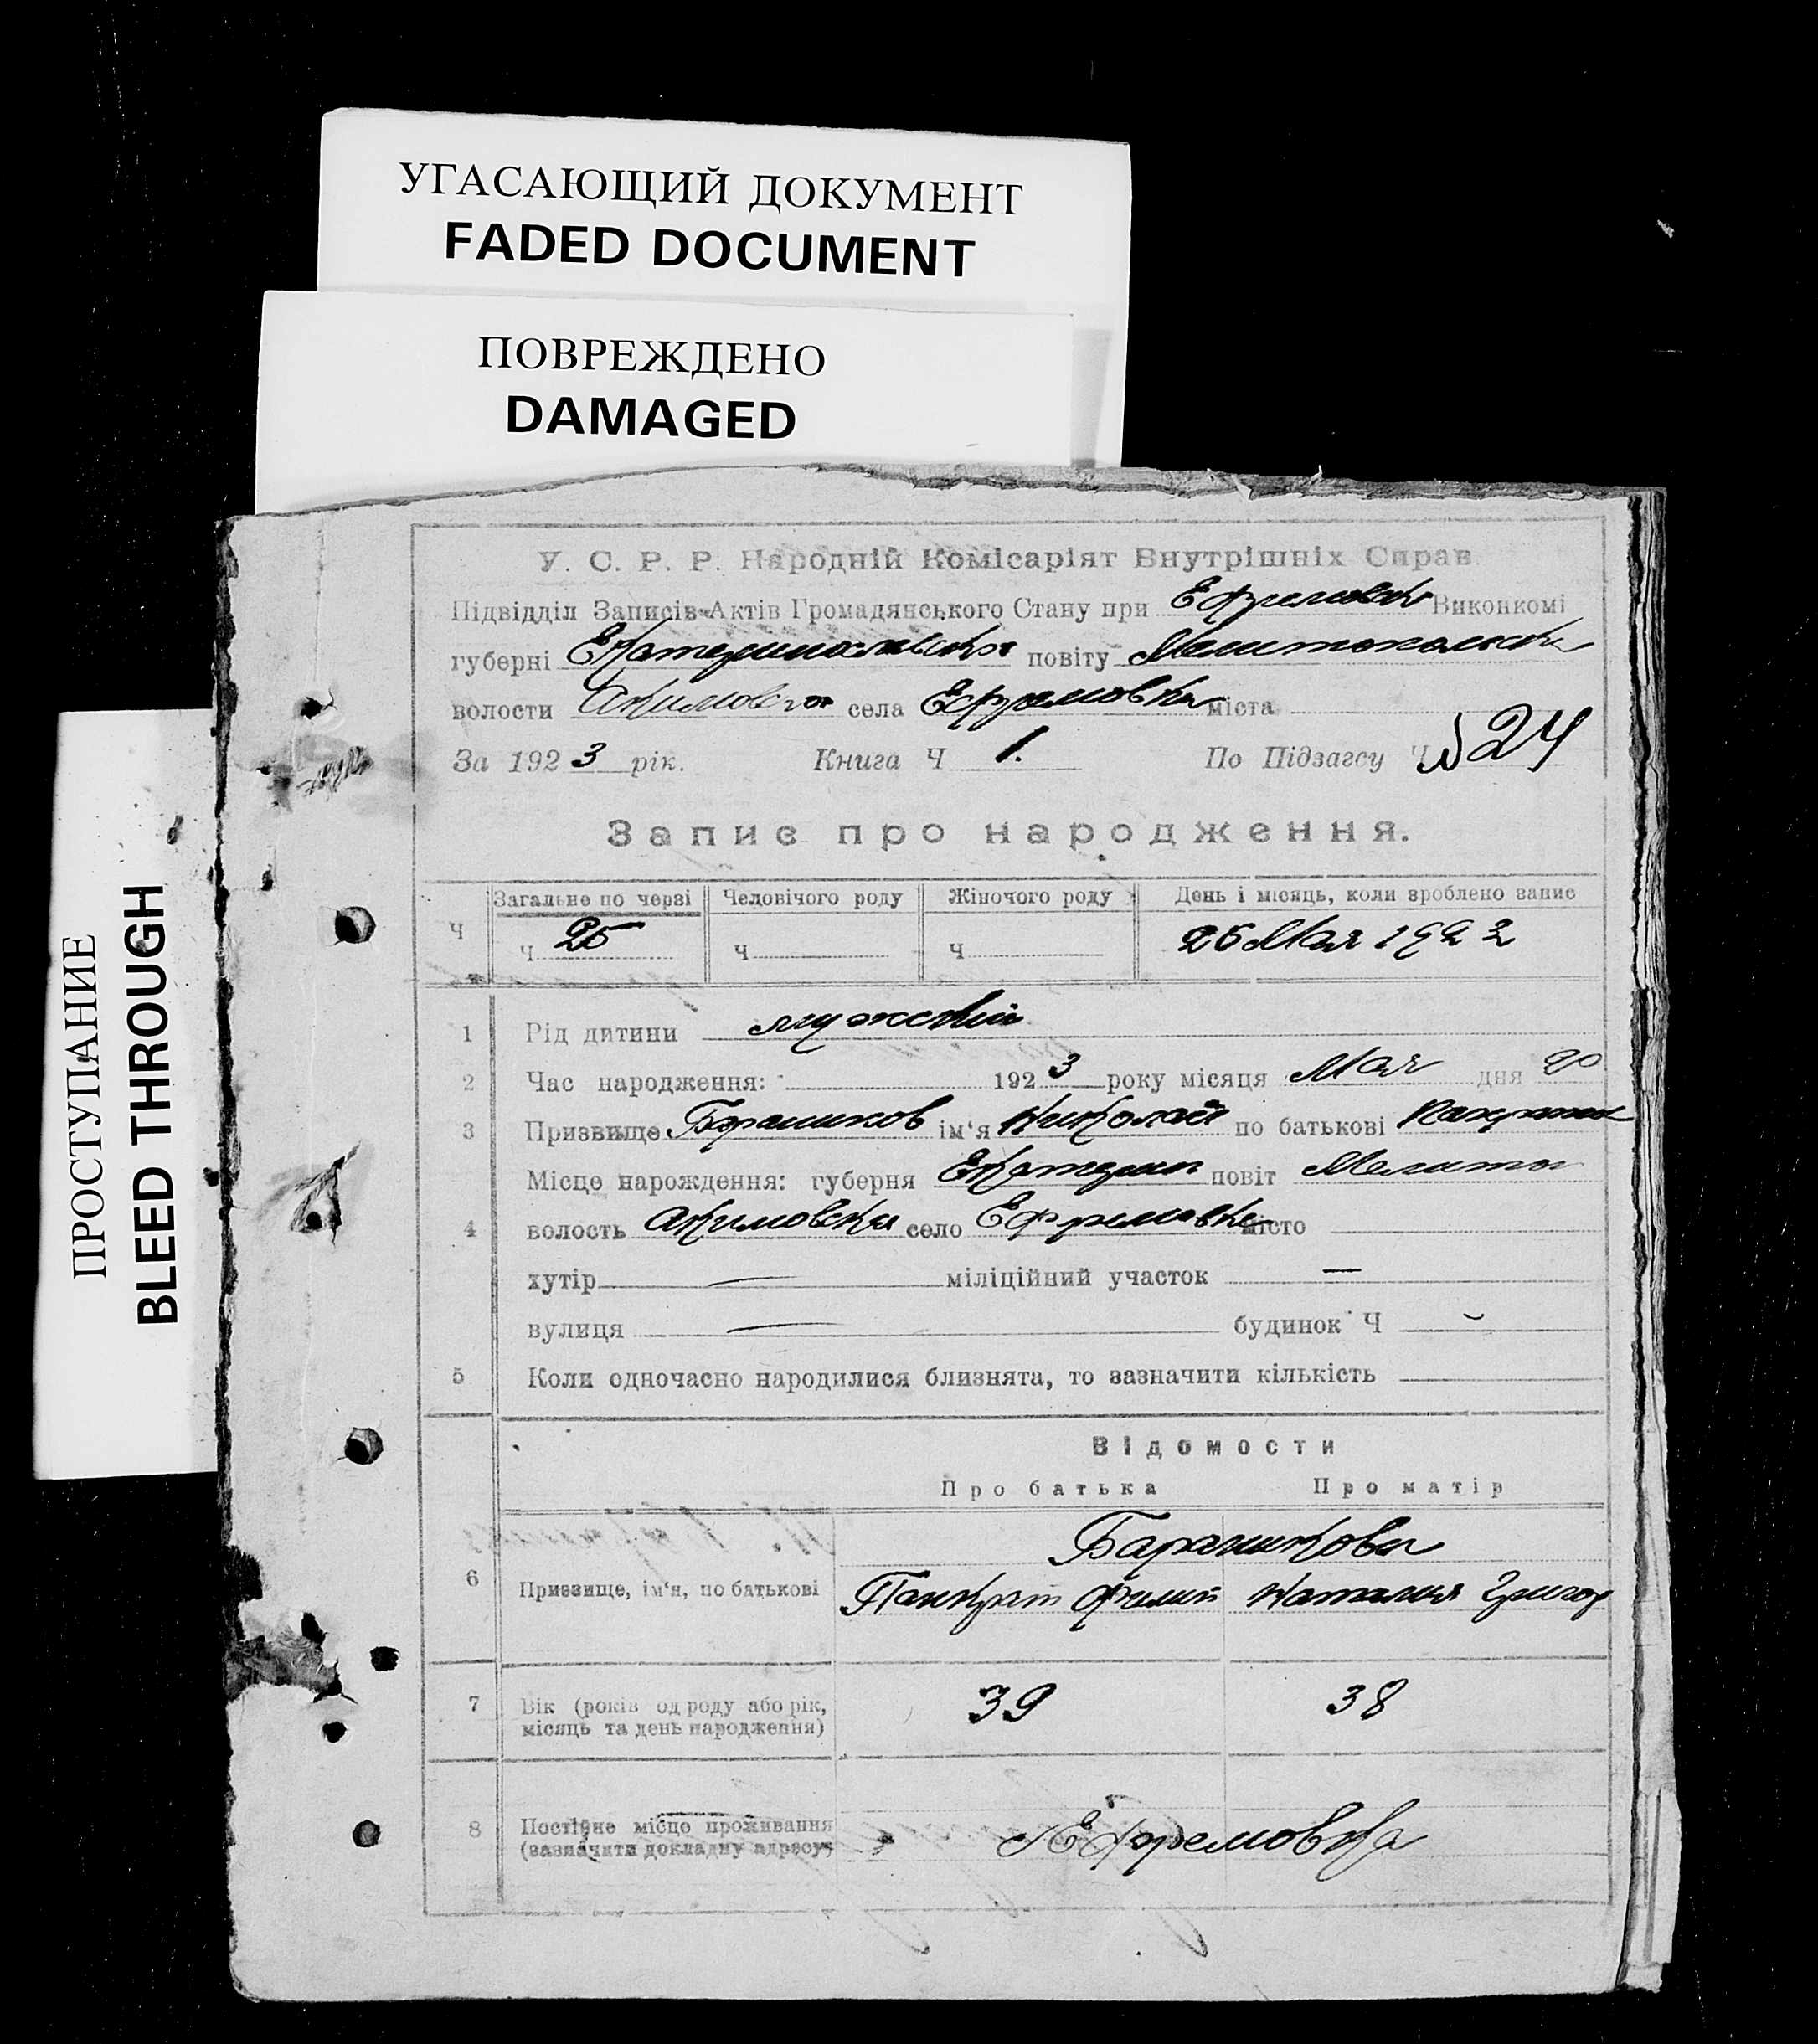 УГАСАЮЩИЙ ДОКУМЕНТ
FADED DOCUMENT
ПОВРЕЖДЕНО
DAMAGED
ПРОСТУПАНИЕ
BLEED THROUGH
У. С. Р. Р. Народній Комісаріят Внутрішніх Справ
Підвідділ Записів-Актів Громадянського Стану при Ефремовск Виконкомі
губерні Екатеринославск повіту Мелитопольск
волости села Ефремовка міста
За 1923 рік. Книга Ч 1. По Підзагсу Ч №24
Запис про народження.
Ч Загальне по черзі Человічого роду Жіночого роду День і місяць, коли зроблено запис
Ч 25 Ч Ч 26 Мая 1923
1 Рід дитини мужский
2 Час народження: 1923 року місяця Мая дня 20
3 Призвище Баранников ім‘я Николай по батькові
Місце нарождення: губерня Екатерин повіт Мелитоп
4 волость Акимовская село Ефремовка місто
хутір — міліційний участок —
вулиця — будинок Ч
5 Коли одночасно народилися близнята, то зазначити кількість
Відомости
Про батька Про матір
Баранникови
6 Призвище, ім‘я, по батькові Панкрат Филип Наталия Григор
7 Вік (років од роду або рік, 39 38
місяць та день народження)
8 Постійне місце проживання с Ефремовка
(зазначити докладну адресу)